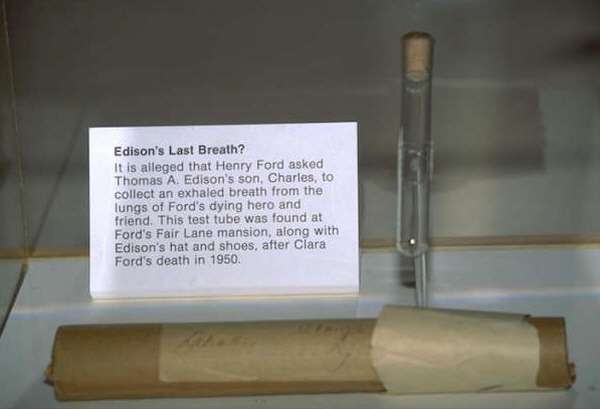 Edison's Last Breath?
It is alleged that Henry Ford asked
Thomas A. Edison's son, Charles, to
collect an exhaled breath from the
lungs of Ford's dying hero and
friend. This test tube was found at
Ford's Fair Lane mansion, along with
Edison's hat and shoes, after Clara
Ford's death in 1950.